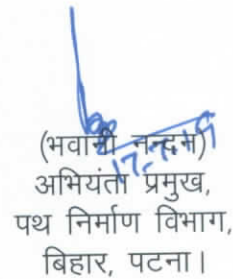 17-7-19
(भवानी नन्दन)
अभियंता प्रमुख,
पथ निर्माण विभाग,
बिहार, पटना।